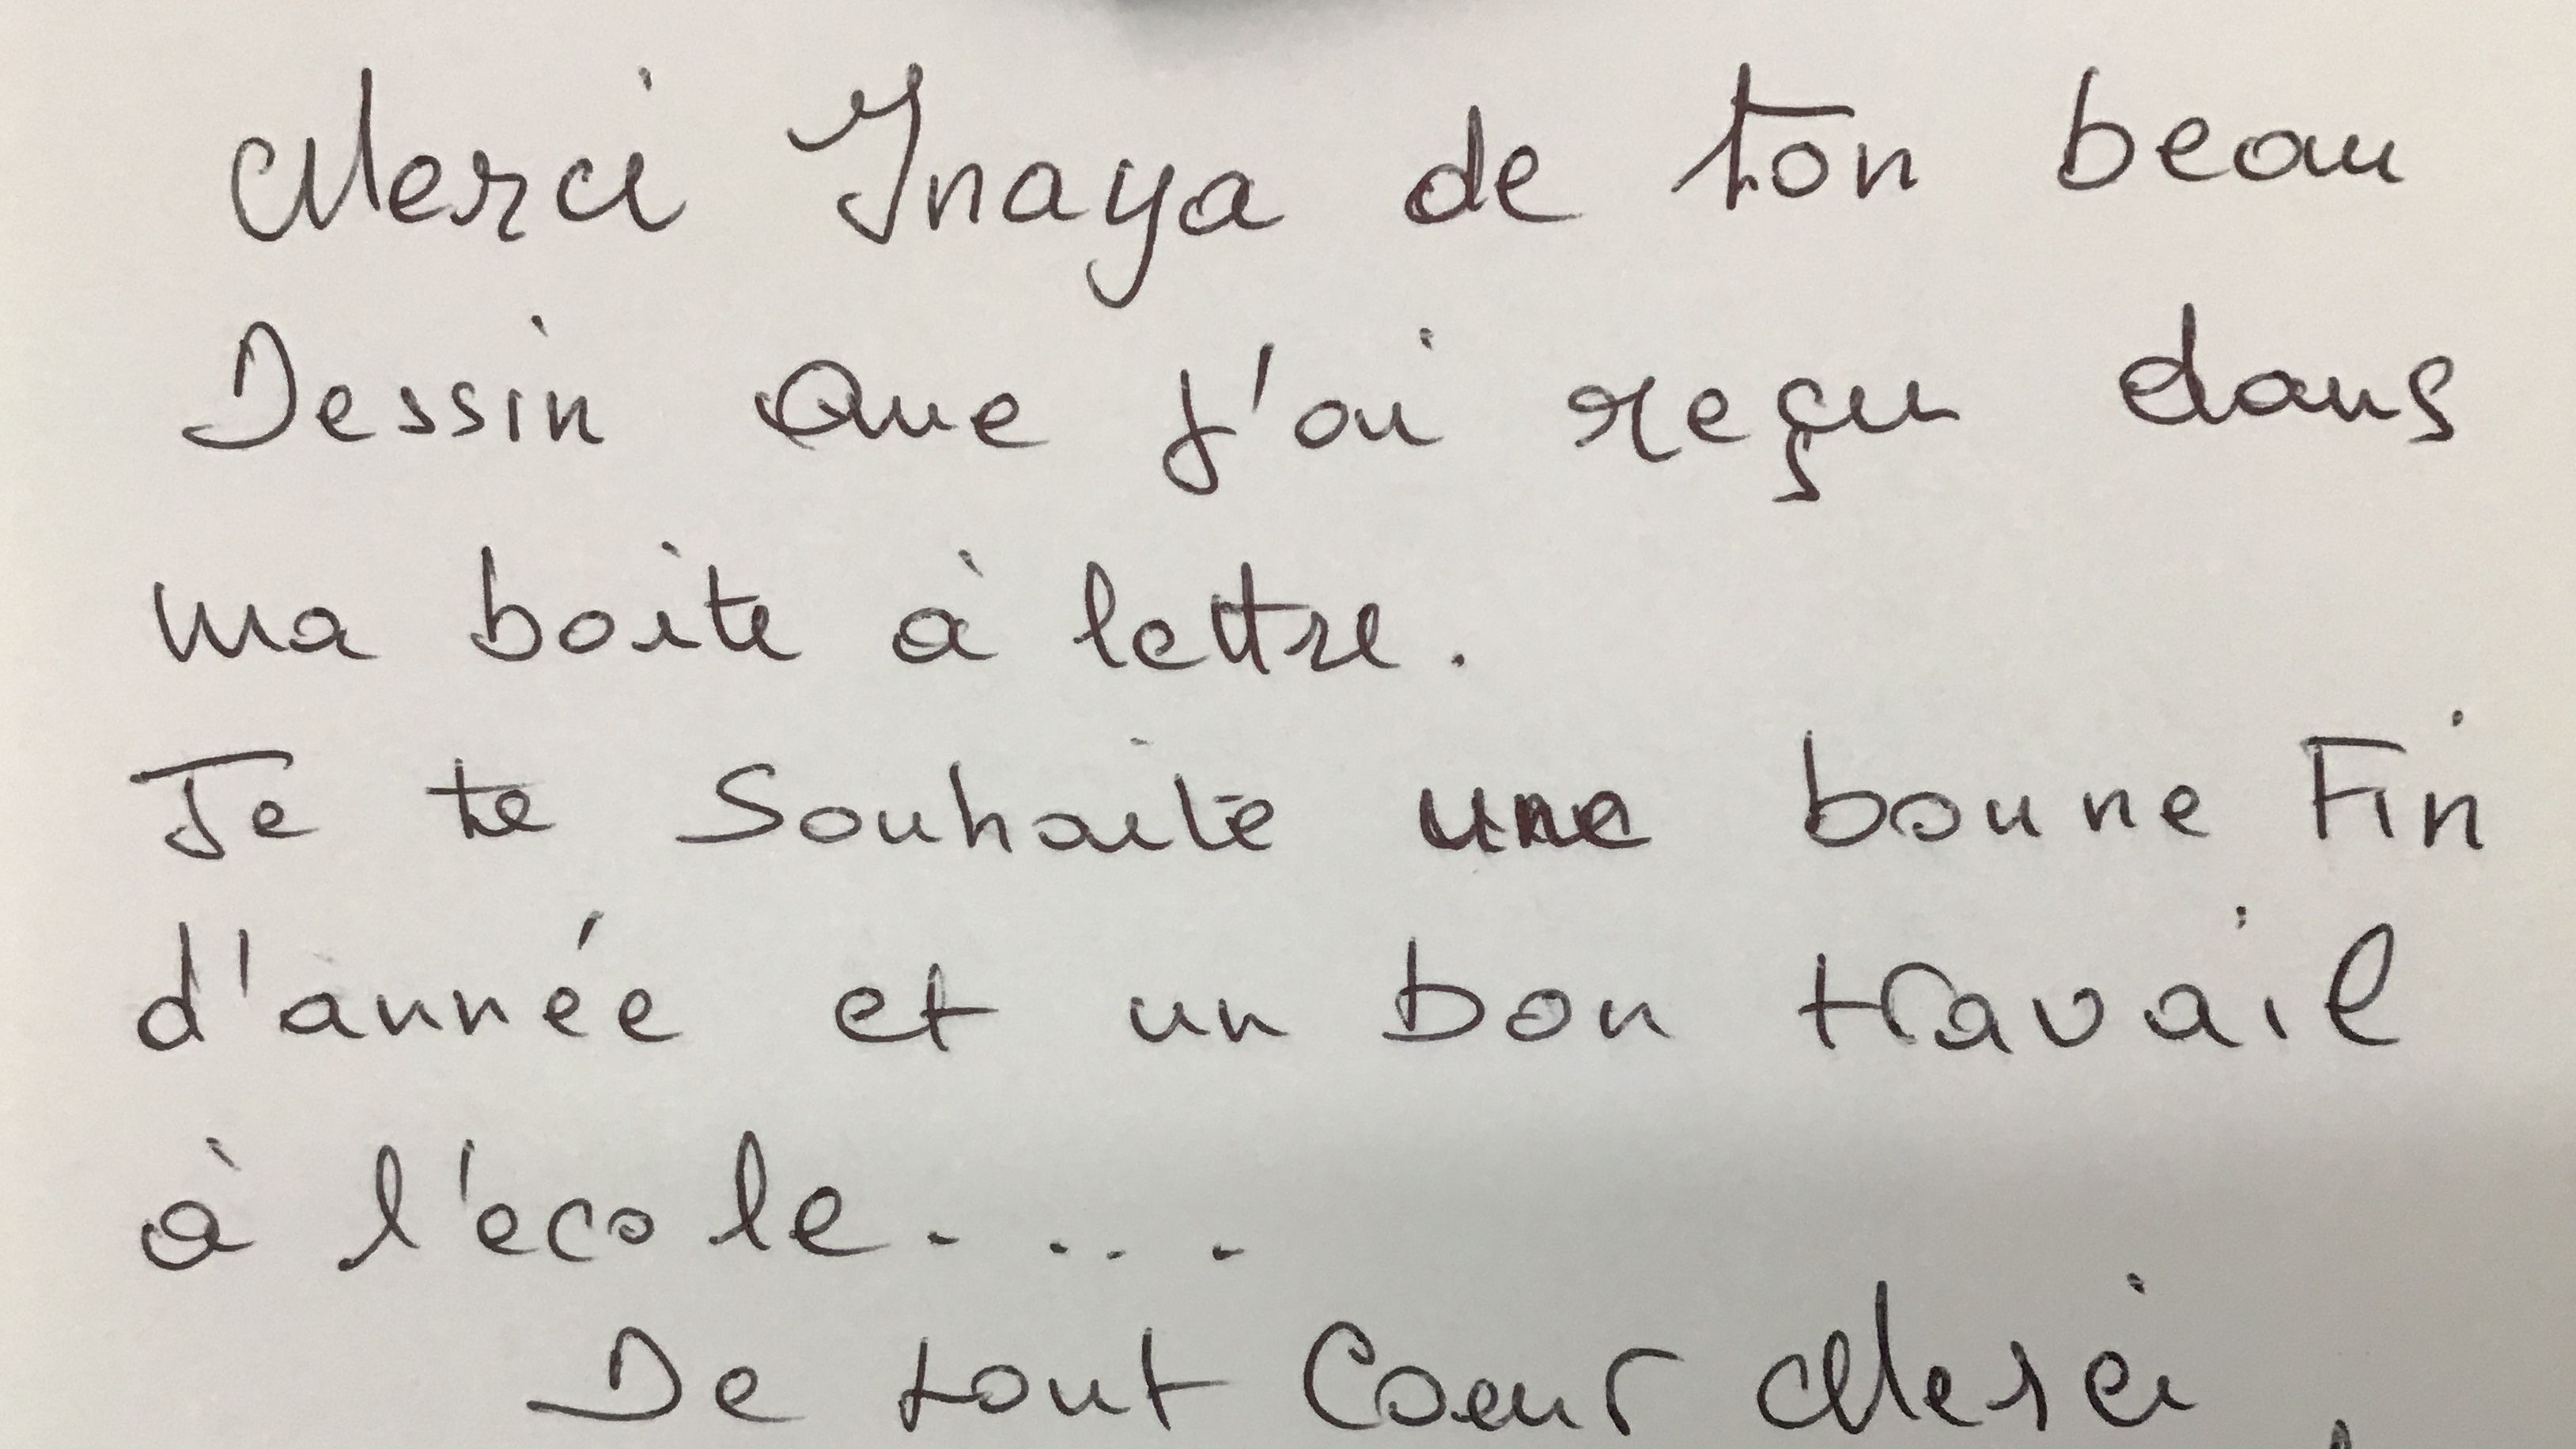 Merci Inaya de ton beau
Dessin Que j'ai reçu dans
ma boite à lettre.
Je te Souhaite une bonne Fin
d'année et un bon travail
à l'ecole.....
De tout Coeur Merci